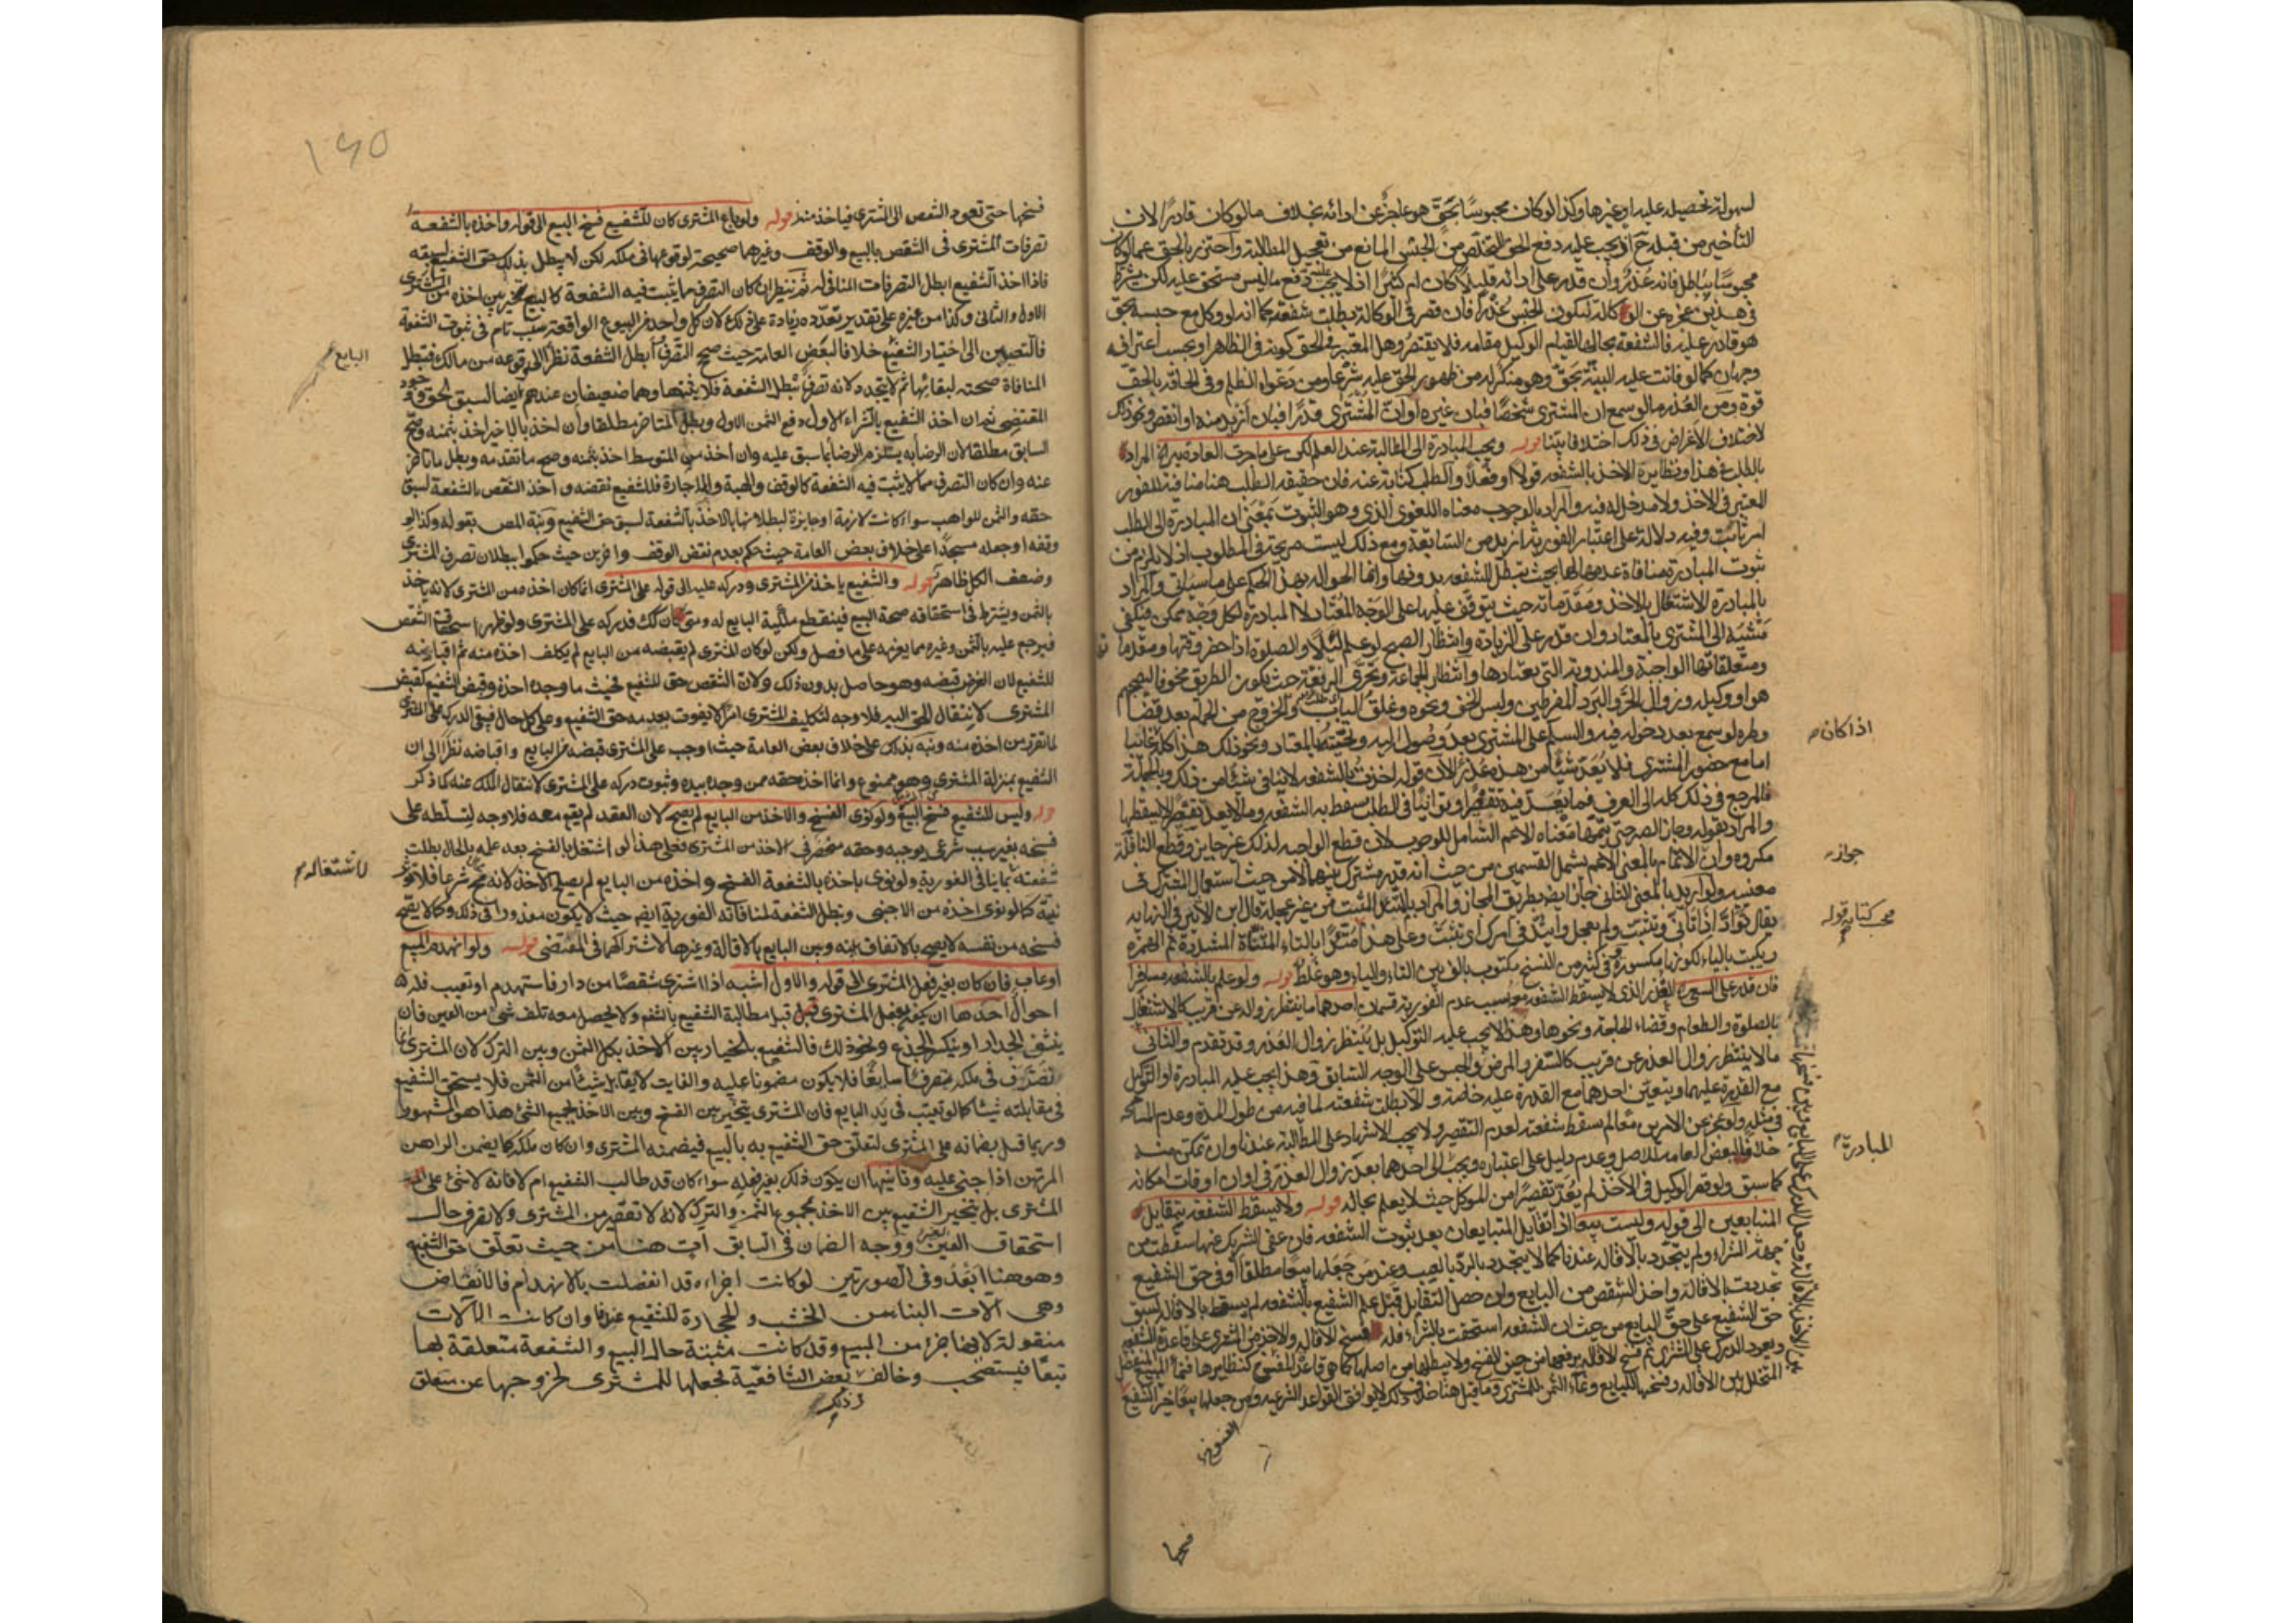 لسهولة تحصيله عليه او غيرها وكذا لو كان محبوسًا بحق هو عاجز عن ادائه بخلاف ما لو كان قادرًا لان
التأخير من قبله ح اذ يجب عليه دفع الحق التخلص من الحبس المانع من تعجيل المطالبة واحترز بالحق عما لو كان
محبوسًا بباطل فانه عذر وان قدر على ادائه قليلا كان ام كثيرًا اذ لا يجب عليه دفع ما ليس مستحق عليه لكن يشترط
في هذين عجزه عن الوكالة ليكون الحبس عذرًا فان قصر في الوكالة بطلت شفعته كما انه لو وكل مع حبسه بحق
هو قادر عليه فالشفعة بحالها لقيام الوكيل مقامه فلا يقتصر وهل المعتبر في الحق كونه في الظاهر او بحسب اعترافه
وجهان كما لو قامت عليه البينة بحق وهو منكر له من ظهور الحق عليه شرعا ومن دعواه الظلم وفي الحاقه بالحق
قوة ومن العذر ما لو سمع ان المشترى شخصًا فبان غيره او ان المشترى قدرًا فبان ازيد منه او انقص ونحو ذلك
لاختلاف الاغراض في ذلك اختلافا بينا قوله ويجب المبادرة الى المطالبة عند العلم لكن على ما جرت العادة به الخ المراد
بالطلب في هذا ونظايره الاخذ بالشفعة قولا او فعلا والطلب كناية عنه فان حقيقة الطلب هنا منافية للفور
المعتبر في الاخذ ولا مدخل له فيه والمراد بالوجوب معناه اللغوى الذي وهو الثبوت بمعنى ان المبادرة الى الطلب
امر ثابت وفيه دلالة على اعتبار الفورية ازيد من السابقة ومع ذلك ليست صريحة في المطلوب اذ لا يلزم من
ثبوت المبادرة منافاة عدمها لها بحيث تبطل الشفعة بدونها وانما الحوالة بهذا الحكم على ما سيأتي والمراد
بالمبادرة الاشتغال بالاخذ ومقدماته حيث يتوقف عليها على الوجه المعتاد لا المبادرة لكل وجه ممكن فيكفى
مشيه الى المشترى بالمعتاد وان قدر على الزيادة وانتظار الصبح لو علم ليلا والصلوة اذا حضر وقتها ومقدماتها
ومتعلقاتها الواجبة والمندوبة التي يعتادها وانتظار الجماعة وتحرى الرفقة حيث يكون الطريق مخوفا ليصحبهم
هو او وكيله وزوال الحر والبرد المفرطين ولبس الخف ونحوه وغلق الباب والخروج من الحمام بعد قضاء
وطره لو سمع بعد دخوله فيه والسلام على المشترى بعد وصوله اليه وتحيته بالمعتاد ونحو ذلك هذا كله غائبا
اما مع حضور المشترى فلا يعد شيئا من هذه عذرًا لان قوله اخذت بالشفعة لا ينافي شيئًا من ذلك وبالجملة
فالمرجع في ذلك كله الى العرف فما يعد فيه تقصيرًا وتوانيًا في الطلب يسقط به الشفعة وما لا يعد تقصيرا لا يسقطها
والمراد بقوله وجاز الصبر حتى يتمها معناه الاعم الشامل للوجوب لان قطع الواجبة لذلك غير جايز وقطع النافلة
مكروه وان الاتمام بالمعنى الاعم يشمل القسمين من حيث انه قدر مشترك بينهما لا من حيث استعمال المشترك في
معنييه ولو اريد بالمعنى الثاني جاز ايضا بطريق المجاز والمراد بالتثبت من غير عجلة قال ابن الاثير في النهاية
يقال تؤاد اذا تأنى وتثبت ولم يعجل واتئد في امرك اى تثبت وعلى هذا متئدًا بالتاء المثناة المشددة ثم الهمزة
ويكتب بالياء لكونها مكسورة وفى كثير من النسخ مكتوب بالف بين التاء والياء وهو غلط قوله ولو علم بالشفعة مسافرا
فان قدر على السعى العذر الذي لا يسقط الشفعة بسبب عدم الفورية قسمان احدهما ما ينتظر زواله عن قريب كالاشتغال
بالصلوة والطعام وقضاء الحاجة ونحوها وهذا لا يجب عليه التوكيل بل ينتظر زوال العذر وقد تقدم والثانى
ما لا ينتظر زوال العذر عن قريب كالسفر والمرض والحبس على الوجه السابق وهذا يجب عليه المبادرة او التوكيل
مع القدرة عليهما ويتعين احدهما مع القدرة عليه خاصة والا بطلت شفعته لما فيه من طول المدة وعدم المسامحة
في مثله ولو عجز عن الامرين معًا لم تسقط شفعته لعدم التقصير ولا يجب الاشهاد على المطالبة عندنا وان تمكن منه
خلافا لبعض العامة للاصل وعدم دليل على اعتباره ويجب الى احدهما بعد زوال العذر في اول اوقات امكانه
كما سبق ولو قصر الوكيل في الاخذ لم يعد تقصيرًا من الموكل حيث لا يعلم بحاله قوله ولا تسقط الشفعة بتقايل
المتبايعين الى قوله وليست بيعا اذا تقايل المتبايعان بعد ثبوت الشفعة فان عفى الشريك عنها سقطت من
جهة الشراء ولم يتجدد بالاقالة عندنا كما لا يتجدد بالرد بالعيب وعند من جعلها بيعًا مطلقا او في حق الشفيع
تجددت بالاقالة واخذ الشقص من البايع وان حصل التقايل قبل علم الشفيع بالشفعة لم يسقط بالاقالة لسبق
حق الشفيع على حق البايع من حيث ان الشفعة استحقت بالشراء فله فسخ الاقالة والاخذ من المشترى على قاعدة الشفعة
ويعود الدرك على المشترى ثم فسخ الاقالة يرفعها من حين الفسخ ولا يبطلها من اصلها كما هو قاعدة الفسوخ كنظايرها فنماء المبيع المنفصل
المتخلل بين الاقالة وفسخها للبايع ونماء الثمن للمشترى وما قيل هنا خلاف ذلك لا يوافق القواعد الشرعية ومن جعلها بيعًا خير الشفيع
اذا كان
جوازه
محب كتابة قوله
المبادرة
الفسوخ
فسخها
١٤٥
فسخها حتى تعود الشقص الى المشترى فياخذ منه قوله ولو باع المشترى كان للشفيع فسخ البيع الى قوله واخذه بالشفعة
تصرفات المشترى في الشقص بالبيع والوقف وغيرهما صحيحة لوقوعها في ملكه لكن لا يبطل بذلك حق الشفيع لسبقه
فاذا اخذ الشفيع ابطل التصرفات المنافى له ثم ننظر ان كان التصرف مما يثبت فيه الشفعة كالبيع تخير بين اخذه من المشترى
الاول والثانى وكذا من غيره على تقدير تعدده زيادة على ذلك لان كل واحد من البيوع الواقعة سبب تام في ثبوت الشفعة
فالتعيين الى اختيار الشفيع خلافا لبعض العامة حيث صحح التصرف وابطل الشفعة نظرًا الى وقوعه من مالك فتبطل
المنافاة صحته لبقائها ثم لا يتجدد لانه تصرف تبطل الشفعة فلا يثبتها وهما ضعيفان عندهم ايضا لسبق الحق ووجود
المقتضى ثم ان اخذ الشفيع بالشراء الاول دفع الثمن الاول وبطل المتاخر مطلقا وان اخذ بالاخير اخذ بثمنه وصح
السابق مطلقا لان الرضا به يستلزم الرضا بما سبق عليه وان اخذ من المتوسط اخذ بثمنه وصح ما تقدمه وبطل ما تاخر
عنه وان كان التصرف مما لا يثبت فيه الشفعة كالوقف والهبة والاجارة فللشفيع نقضه واخذ الشقص بالشفعة لسبق
حقه والثمن للواهب سواء كانت لازمة او جايزة لبطلانها بالاخذ بالشفعة لسبق حق الشفيع ونبه المص بقوله وكذا لو
وقفه او جعله مسجدًا على خلاف بعض العامة حيث حكم بعدم نقض الوقف واخرين حيث حكموا ببطلان تصرف المشترى
وضعف الكل ظاهر قوله والشفيع ياخذ من المشترى ودركه عليه الى قوله على المشترى انما كان اخذه من المشترى لانه ياخذ
بالثمن ويشترط في استحقاقه صحة البيع فينقطع ملكية البايع له ومتى كان كذلك فدركه على المشترى ولو ظهر استحقاق الشقص
فيرجع عليه بالثمن وغيره مما يغرمه على ما فصل ولكن لو كان المشترى لم يقبضه من البايع لم يكلف اخذه منه ثم اقباضه
للشفيع لان الغرض قبضه وهو حاصل بدون ذلك ولان الشقص حق للشفيع فحيث ما وجده اخذه وقبض الشفيع كقبض
المشترى لانتقال الحق اليه فلا وجه لتكليف المشترى امرًا لا يفوت بعدمه حق الشفيع وعلى كل حال فيبقى الدرك على المشترى
لما تقرر من اخذه منه ونبه بذلك على خلاف بعض العامة حيث اوجب على المشترى قبضه من البايع واقباضه نظرًا الى ان
الشفيع بمنزلة المشترى وهو ممنوع وانما اخذ حقه ممن وجده بيده وثبوت دركه على المشترى لانتقال الملك عنه كما ذكر
قوله وليس للشفيع فسخ البيع ولو نوى الفسخ والاخذ من البايع لم يصح لان العقد لم يقع معه فلا وجه لتسلطه على
فسخه بغير سبب شرعى يوجبه وحقه منحصر في الاخذ من المشترى فعلى هذا لو اشتغل بالفسخ بعد علمه بالحال بطلت
شفعته بما ينافى الفورية ولو نوى باخذه بالشفعة الفسخ واخذه من البايع لم يصح الاخذ لانه شرعا فلا تؤثر
نيته كما لو نوى اخذه من الاجنبى وتبطل الشفعة لمنافاته الفورية ايضا حيث لا يكون معذورا في ذلك وكما لا يصح
فسخه من نفسه لا يصح بالاتفاق بينه وبين البايع بالاقالة وغيرها لاشتراكهما في المقتضى قوله ولو انهدم المبيع
او عاب فان كان بغير فعل المشترى الى قوله والاول اشبه اذا اشترى شقصًا من دار فاستهدم او تعيب فله ٥
احوال احدها ان يكون بفعل المشترى قبل مطالبة الشفيع بالشفعة ولا يحصل معه تلف شئ من العين فان
ينشق الجدار او ينكسر الجذع ونحو ذلك فالشفيع بالخيار بين الاخذ بكل الثمن وبين الترك لان المشترى انما
تصرف في ملكه تصرفًا سايغًا فلا يكون مضمونا عليه والفايت لا يقابل شيئًا من الثمن فلا يستحق الشفيع
في مقابلته شيئا كما لو تعيب في يد البايع فان المشترى يتخير بين الفسخ وبين الاخذ بجميع الشئ هذا هو المشهور
وربما قيل بضمانه على المشترى لتعلق حق الشفيع به بالبيع فيضمنه المشترى وان كان ملكه كما يضمن الراهن
المرتهن اذا جنى عليه وثانيها ان يكون ذلك بغير فعله سواء كان قد طالب الشفيع ام لا فانه لا شئ على
المشترى بل يتخير الشفيع بين الاخذ بمجموع الثمن والترك لانه لا تقصير من المشترى ولا تصرف حال
استحقاق الغير ووجه الضمان في السابق آت هنا من حيث تعلق حق الشفيع
وهو هنا ابعد وفى الصورتين لو كانت اجزاءه قد انفصلت بالانهدام فالانقاض
وهى الات البناء من الخشب والحجارة للشفيع عندنا وان كانت الآلات
منقولة لانها جزء من المبيع وقد كانت مثبتة حال البيع والشفعة متعلقة بها
تبعًا فيستصحب وخالف بعض الشافعية فجعلها للمشترى لخروجها عن متعلق
البايع
لاشتغاله